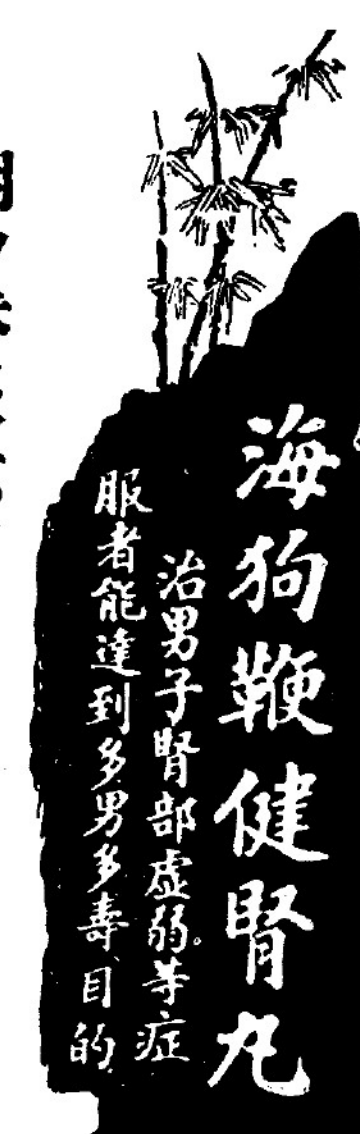 海狗鞭健腎丸
治男子腎部虛弱。等症
服者能達到多男多壽目的